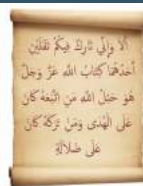 أَلَا وَإِنِّي تَارِكٌ فِيكُمْ ثَقَلَيْنِ
أَحَدُهُمَا كِتَابُ اللهِ عَزَّ وَجَلَّ
هُوَ حَبْلُ اللهِ مَنِ اتَّبَعَهُ كَانَ
عَلَى الْهُدَى وَمَنْ تَرَكَهُ كَانَ
عَلَى ضَلَالَةٍ